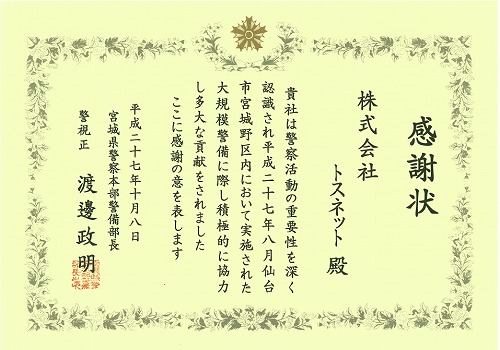 感謝状
株式会社
トスネット 殿
貴社は警察活動の重要性を深く
認識され平成二十七年八月仙台
市宮城野区内において実施された
大規模警備に際し積極的に協力
し多大な貢献をされました
ここに感謝の意を表します
平成二十七年十月八日
宮城県警察本部警備部長
警視正 渡邊政明